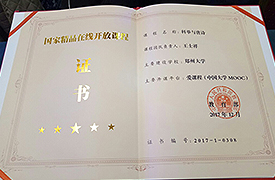 国家精品在线开放课程
证
书
课程名称：科举与唐诗
课程团队负责人：王士祥
主要建设学校：郑州大学
主要开课平台：爱课程（中国大学MOOC）
教育部
2017年12月
证书编号：2017-1-0398